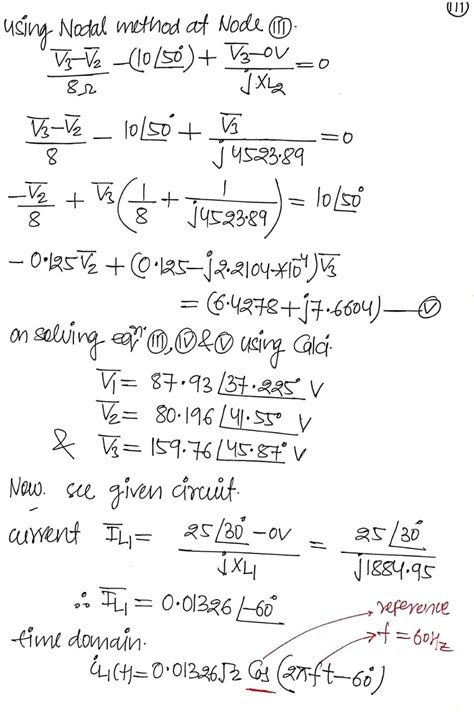 (III)
using Nodal method at Node (III).
(V̅3-V̅2)/8Ω -(10∠50°)+ (V̅3-0V)/(jXL2) =0
(V̅3-V̅2)/8 - 10∠50° + V̅3/(j4523.89) =0
-V̅2/8 + V̅3(1/8 + 1/(j4523.89)) = 10∠50°
-0.125V̅2+(0.125-j2.2104*10⁻⁴)V̅3
= (6.4278+j7.6604) — (V)
on solving eqⁿ: (III), (IV) & (V) using Calci.
V̅1= 87.93∠37.225° V
V̅2= 80.196∠41.55° V
& V̅3= 159.76∠45.87° V
Now. see given circuit.
current I̅L1= (25∠30°-0V)/(jXL1) = 25∠30°/(j1884.95)
∴ I̅L1= 0.01326∠-60°
→ reference
time domain.
→ f=60Hz
iL1(t)=0.01326√2 Cos(2πft-60°)